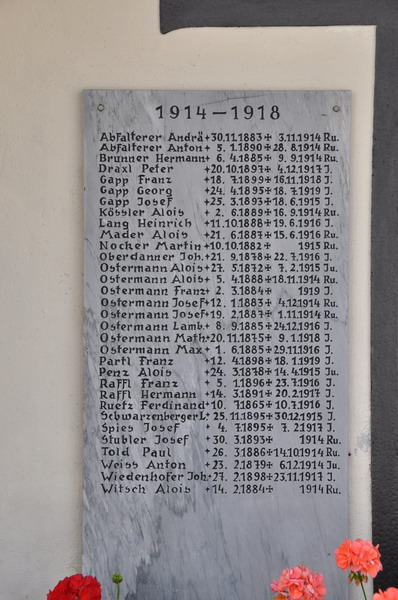 1914 – 1918
Abfalterer Andrä +30.11.1883 ✠ 3.11.1914 Ru.
Abfalterer Anton + 5. 1.1890 ✠ 28. 8.1914 Ru.
Brunner Hermann + 6. 4.1885 ✠ 9. 9.1914 Ru.
Draxl Peter +20.10.1897 ✠ 4.12.1917 J.
Gapp Franz +18. 7.1899 ✠ 16.11.1918 J.
Gapp Georg +24. 4.1895 ✠ 18. 7.1919 J.
Gapp Josef +25. 3.1893 ✠ 18. 6.1915 J.
Kössler Alois + 2. 6.1889 ✠ 16. 9.1914 Ru.
Lang Heinrich +11.10.1888 ✠ 19. 6.1916 J.
Mader Alois +21. 6.1887 ✠ 15. 6.1916 Ru.
Nocker Martin +10.10.1882 ✠ 1915 Ru.
Oberdanner Joh. +21. 9.1878 ✠ 22. 7.1916 J.
Ostermann Alois +27. 5.1872 ✠ 7. 2.1915 Ju.
Ostermann Alois + 5. 4.1888 ✠ 18.11.1914 Ru.
Ostermann Franz + 2. 3.1884 ✠ 1919 J.
Ostermann Josef +12. 1.1883 ✠ 4.12.1914 Ru.
Ostermann Josef +19. 2.1887 ✠ 1.11.1914 Ru.
Ostermann Lamb. + 8. 9.1885 ✠ 24.12.1916 J.
Ostermann Math. +20.11.1875 ✠ 9. 1.1918 J.
Ostermann Max + 1. 6.1885 ✠ 29.11.1916 J.
Partl Franz +12. 4.1898 ✠ 18. 1.1919 J.
Penz Alois +24. 3.1878 ✠ 14. 4.1915 Ju.
Raffl Franz + 5. 1.1896 ✠ 23. 7.1916 J.
Raffl Hermann +14. 3.1891 ✠ 20. 2.1917 J.
Ruetz Ferdinand +10. 7.1865 ✠ 10. 7.1916 J.
Schwarzenberger L. 25.11.1895 ✠ 30.12.1915 J.
Spies Josef + 4. 7.1895 ✠ 7. 2.1917 J.
Stubler Josef +30. 3.1893 ✠ 1914 Ru.
Told Paul +26. 3.1886 ✠ 14.10.1914 Ru.
Weiss Anton +23. 2.1879 ✠ 6.12.1914 Ju.
Wiedenhofer Joh. +27. 2.1898 ✠ 23.11.1917 J.
Witsch Alois +14. 2.1884 ✠ 1914 Ru.